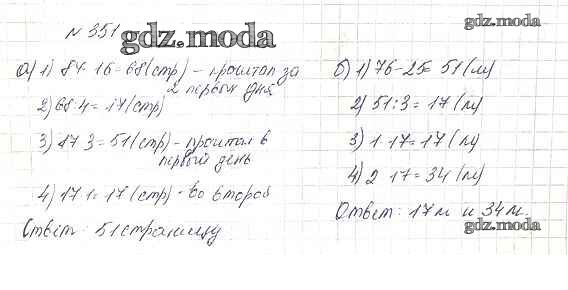 № 351
gdz.moda
gdz.moda
а) 1) 84-16=68 (стр) - прочитал за
2 первых дня
2) 68:4=17 (стр)
3) 17·3=51 (стр) - прочитал в
первый день
4) 17·1=17 (стр) - во второй
Ответ: 51 страницу.
б) 1) 76-25=51 (м)
2) 51:3=17 (м)
3) 1·17=17 (м)
4) 2·17=34 (м)
Ответ: 17 м и 34 м.
gdz.moda